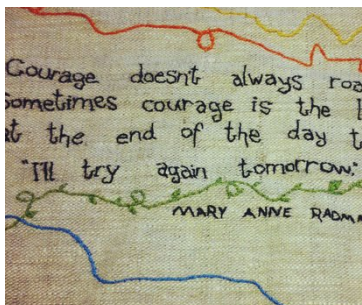 Courage doesn't always roa
Sometimes courage is the l
at the end of the day t
"I'll try again tomorrow."
MARY ANNE RADMA